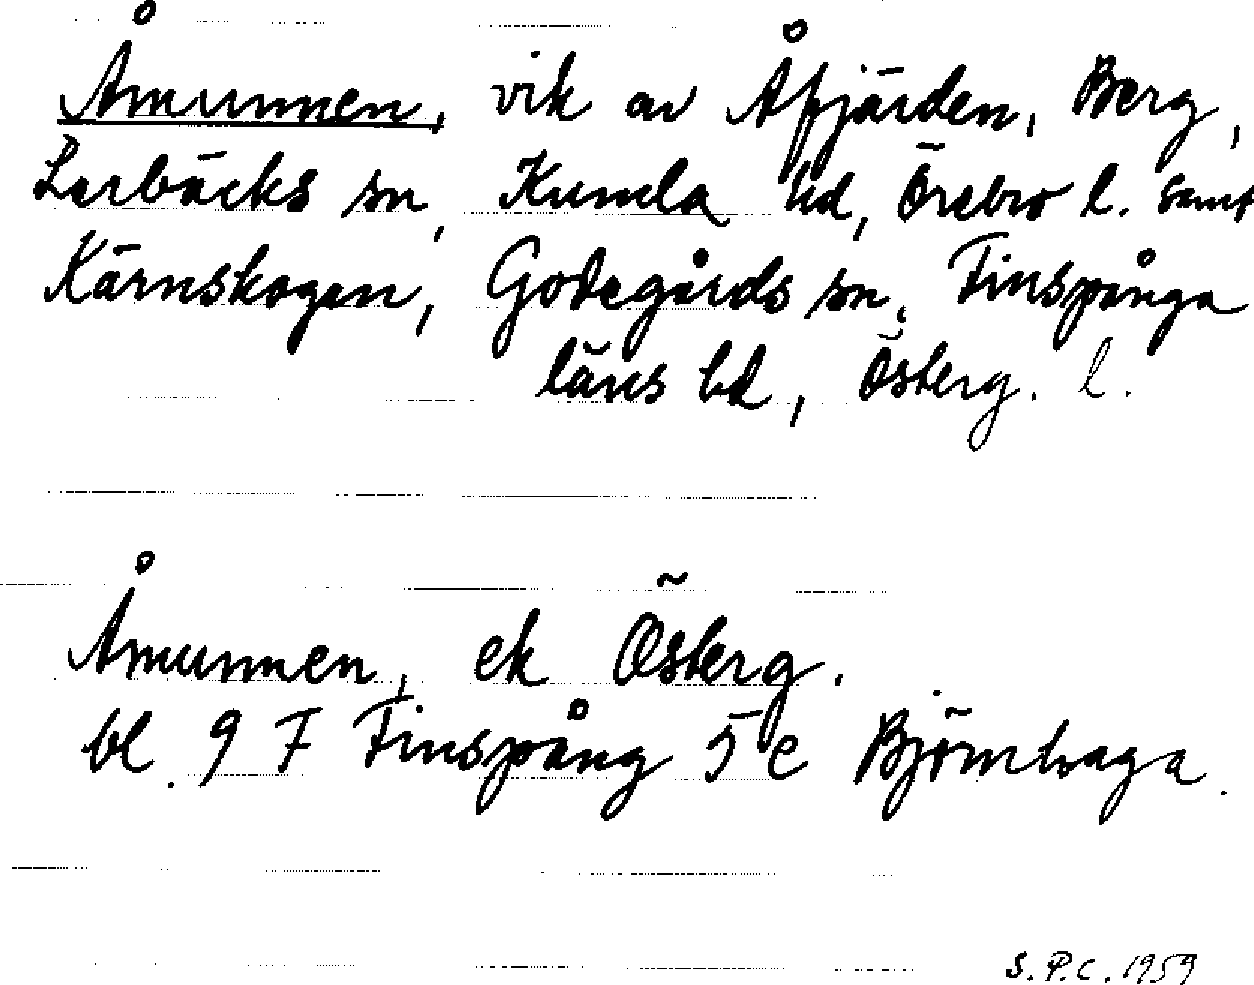 Åmunnen, vik av Åfjärden, Berg,
Lerbäcks sn, Kumla hd, Örebro l. samt
Kärnskogen, Godegårds sn, Finspånga
läns hd, Österg. l.
Åmunnen, ek Österg.
bl. 9 F Finspång 5 c Björnhaga.
S.P.C. 1959